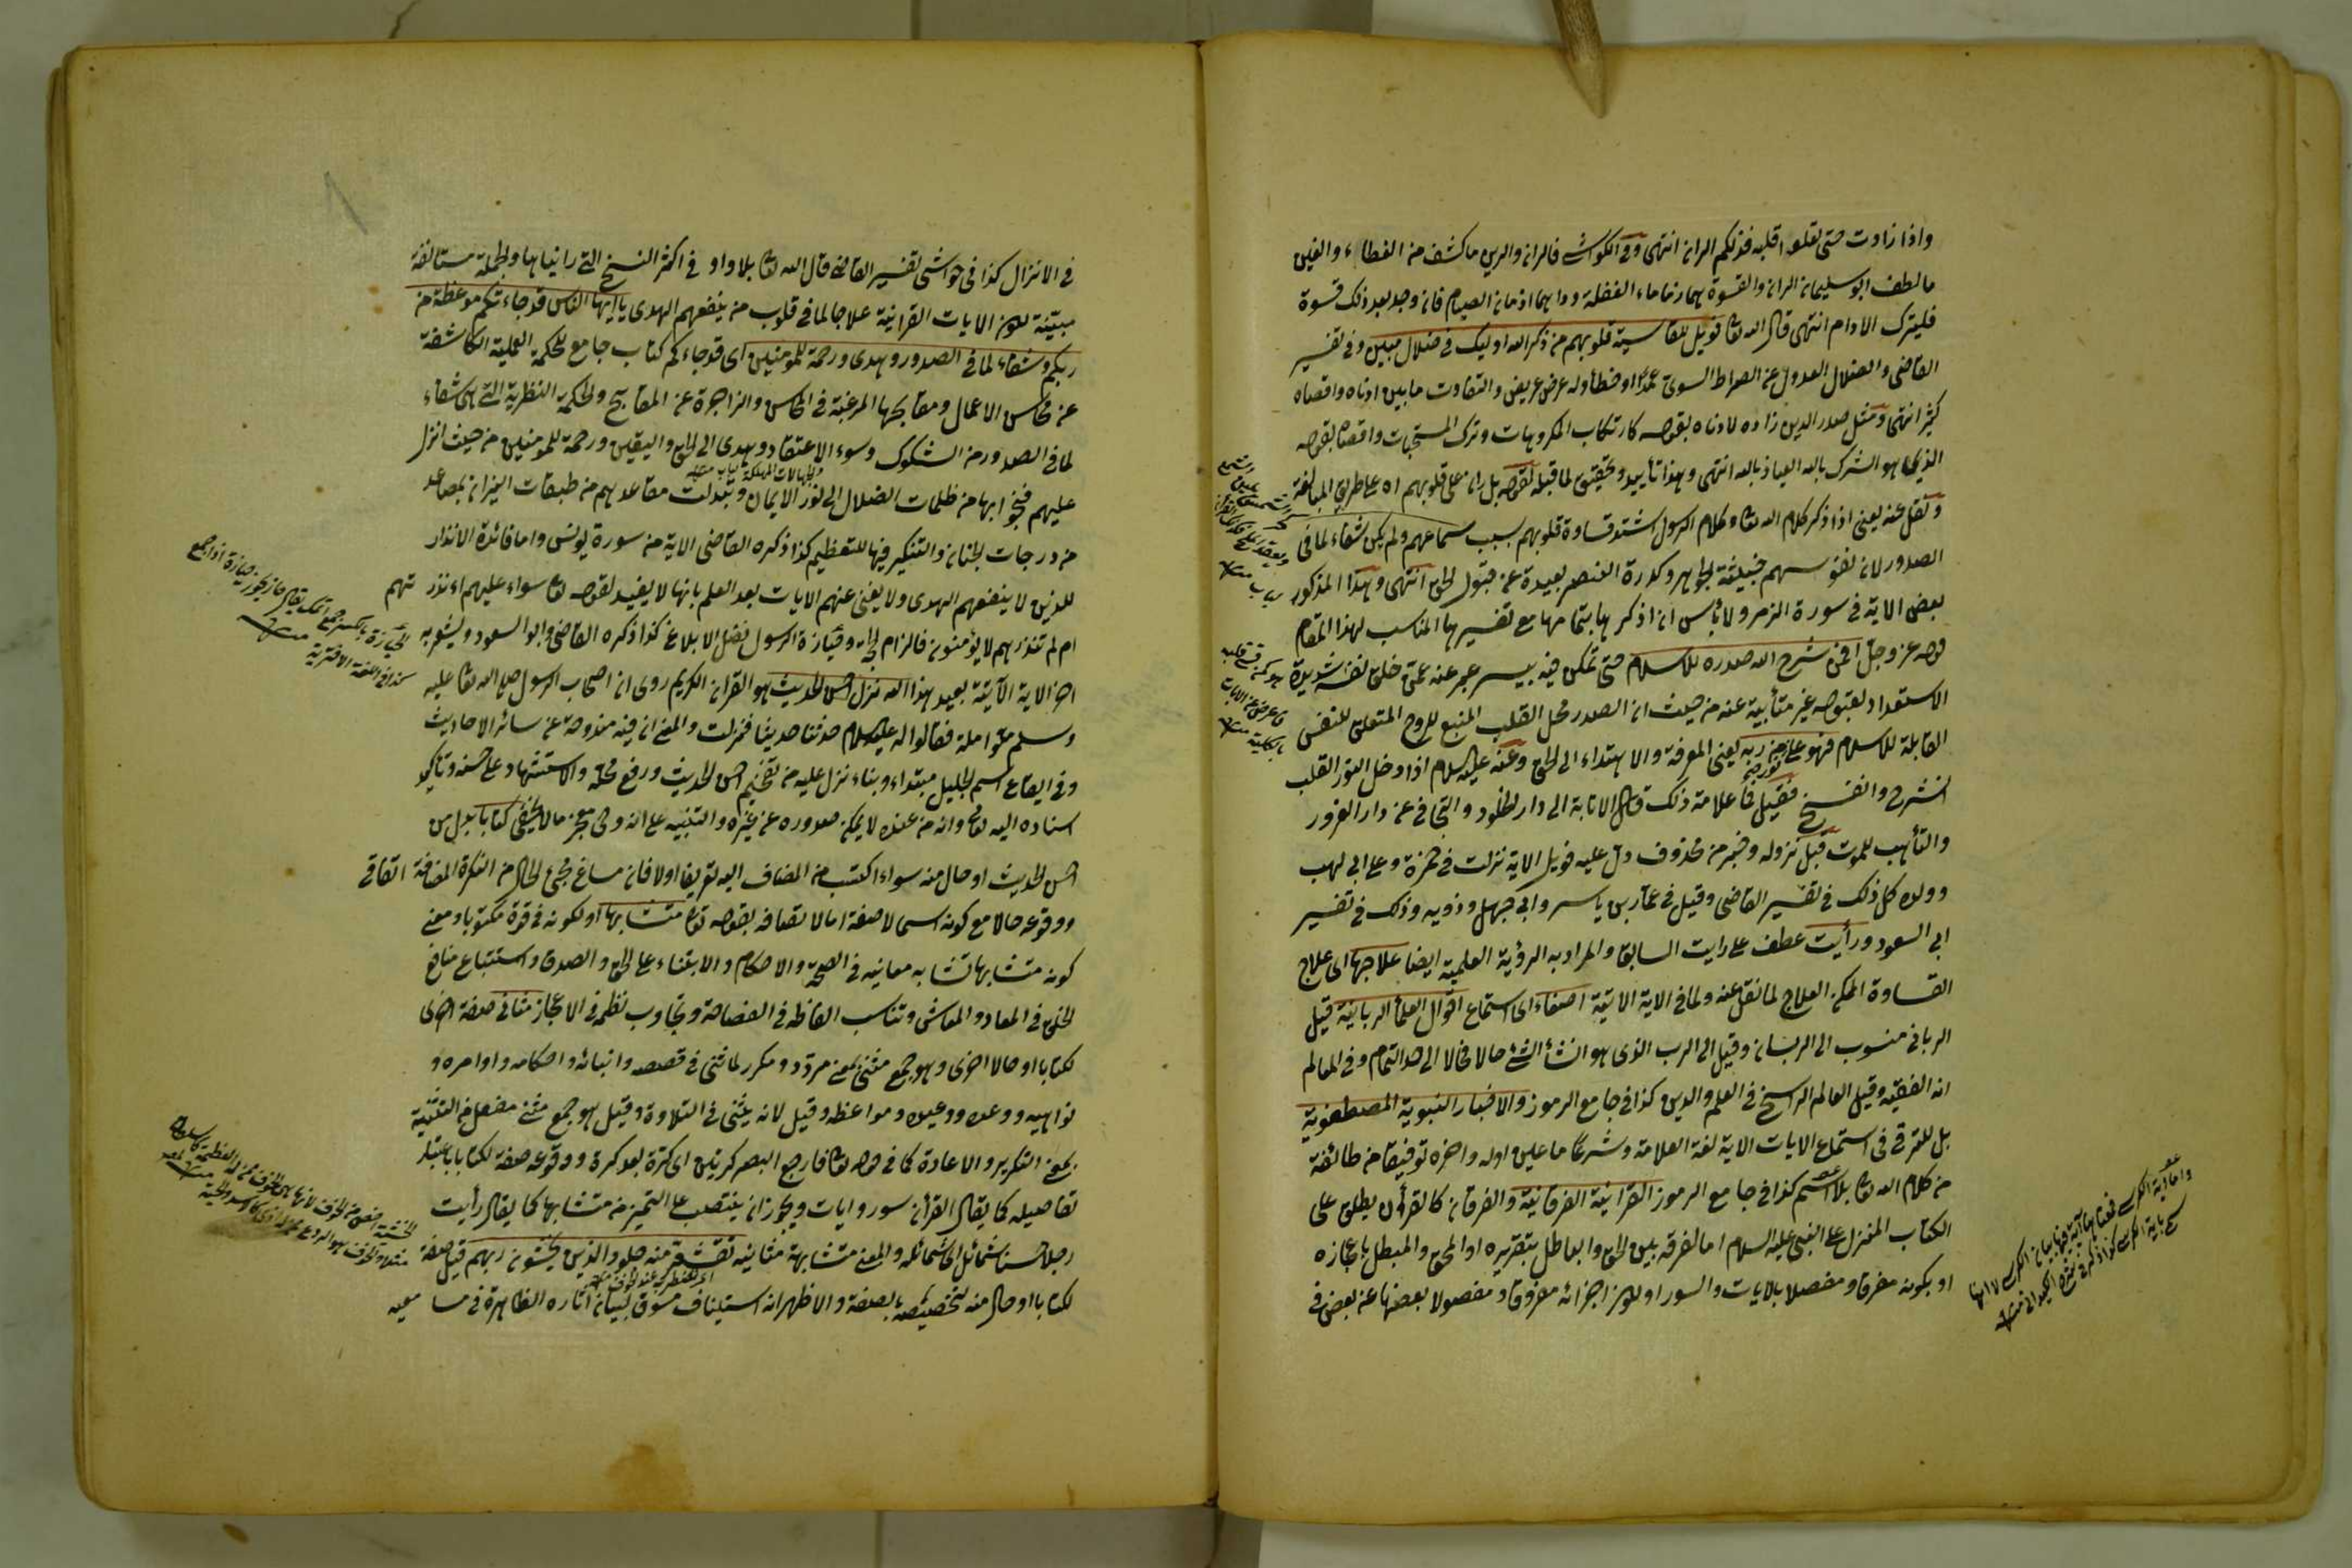 واذا زادت حتى تعلو قلبه فذلكم الران انتهى وفي الكواشي فالران والرين ما كشف من الغطاء والغين
ما لطف ابو سليمان الران والقسوة هما زماما الغفلة ودواهما ادمان الصيام فان وجد بعد ذلك قسوة
فليترك الادام انتهى قال الله تعا فويل للقاسية قلوبهم من ذكر الله اولئك في ضلال مبين وفي تفسير
القاضي والضلال العدول عن الصراط السوى عمدا او خطأ وله عرض عريض والتفاوت ما بين ادناه واقصاه
كثير انتهى ومثل صدر الدين زاده لادناه بقوله كارتكاب المكروهات وترك المستحبات واقصاه بقوله
الذي هو الشرك بالله العياذ بالله انتهى وهذا تأييد وتحقيق لما قبله لقوله بل ران على قلوبهم اه على طريق المبالغة
ونقل عنه يعني اذا ذكر كلام الله تعا وكلام الرسول اشتد قساوة قلوبهم بسبب سماعهم ولم يكن شفاء لما في
الصدور لان نفوسهم خبيثة الجواهر وكدرة العنصر بعيدة عن قبول الحق انتهى وهذا المذكور
بعض الاية في سورة الزمر ولا بأس ان اذكرها بتمامها مع تفسيرها المناسب لهذا المقام
قوله عز وجل افمن شرح الله صدره للاسلام حتى تمكن فيه بيسر عبر عنه عمن خلق نفسه شديدة
الاستعداد لقبوله غير متأبية عنه من حيث ان الصدر محل القلب المنبع للروح المتعلق للنفس
القابلة للاسلام فهو على نور من ربه يعني المعرفة والاهتداء الى الحق وعنه عليه السلام اذا دخل النور القلب
انشرح وانفسح فقيل فما علامة ذلك قال الانابة الى دار الخلود والتجافي عن دار الغرور
والتأهب للموت قبل نزوله وخبر من محذوف دل عليه فويل الاية نزلت في حمزة وعلى وابي لهب
وولده كل ذلك في تفسير القاضي وقيل في عمار بن ياسر وابي جهل وذويه وذلك في تفسير
ابي السعود ورأيت عطف على رايت السابق والمراد به الرؤية العلمية ايضا علاجها اى علاج
القساوة الممكن العلاج لما نقل عنه ولما في الاية الاتية اصغاء اى استماع اقوال العلماء الربانية قيل
الرباني منسوب الى الربان وقيل الى الرب الذي هو انشأ الشئ حالا فحالا الى حد التمام وفي المعالم
انه الفقيه وقيل العالم الراسخ في العلم والدين كذا في جامع الرموز والاخبار النبوية المصطفوية
بل للترقي في استماع الايات الاية لغة العلامة وشرعا ما علين اوله واخره توقيفا من طائفة
من كلام الله تعا بلا اسم كذا في جامع الرموز القرانية الفرقانية والفرقان كالقرآن يطلق على
الكتاب المنزل على النبي عليه السلام اما لفرقه بين الحق والباطل بتقريره او المحق والمبطل باعجازه
او بكونه مفرقا ومفصلا بالايات والسور او لكون اجزائه مفروقا ومفصولا بعضها عن بعض في
في الانزال كذا في حواشي تفسير القاضي قال الله تعا بلا واو في اكثر النسخ التي رايناها والجملة مستانفة
مبينة لكون الايات القرانية علاجا لما في قلوب من ينفعهم الهدى يا ايها الناس قد جاءتكم موعظة من
ربكم وشفاء لما في الصدور وهدى ورحمة للمؤمنين اى قد جاءكم كتاب جامع للحكمة العملية الكاشفة
عن محاسن الاعمال ومقابحها المرغبة في المحاسن والزاجرة عن المقابح والحكمة النظرية التي هي شفاء
لما في الصدور من الشكوك وسوء الاعتقاد وهدى الى الحق واليقين ورحمة للمؤمنين من حيث انزل
عليهم فنجوا بها من ظلمات الضلال الى نور الايمان وتبدلت مقاعدهم من طبقات النيران بمصاعد
من درجات الجنان والتنكير فيها للتعظيم كذا ذكره القاضي الاية من سورة يونس واما فائدة الانذار
للذين لا ينفعهم الهدى ولا يغني عنهم الايات بعد العلم بانها لا يفيد لقوله تعا سواء عليهم ءانذرتهم
ام لم تنذرهم لا يؤمنون فالزام الحجة وحيازة الرسول فضل الابلاغ كذا ذكره القاضي وابو السعود ويشعر به
اخر الاية الآتية بعيد هذا الله نزل احسن الحديث هو القران الكريم روى ان اصحاب الرسول صلى الله تعا عليه
وسلم ملوا ملة فقالوا له عليه السلام حدثنا حديثا فنزلت والمعنى ان فيه مندوحة عن سائر الاحاديث
وفي ايقاع اسم الجليل مبتداء وبناء نزل عليه من تفخيم احسن الحديث ورفع محله والاستشهاد على حسنه وتاكيد
اسناده اليه تعا وانه من عنده لا يمكن صدوره عن غيره والتنبيه على انه وحي معجز ما لا يخفى كتابا بدل من
احسن الحديث او حال منه سواء اكتسب من المضاف اليه تعريفا اولا فان مساغ مجئ الحال من النكرة المضافة اتفاقي
ووقوعه حالا مع كونه اسما لا صفة اما لاتصافه بقوله تعا متشابها او لكونه في قوة مكتوبا ومعنى
كونه متشابها تشابه معانيه في الصحة والاحكام والابتناء على الحق والصدق واستتباع منافع
الخلق في المعاد والمعاش وتناسب الفاظه في الفصاحة وتجاوب نظمه في الاعجاز مثاني صفة اخرى
لكتابا او حالا اخرى وهو جمع مثنى بمعنى مردد ومكرر لما ثنى في قصصه وانبائه واحكامه واوامره و
نواهيه ووعده ووعيده ومواعظه وقيل لانه يثنى في التلاوة وقيل هو جمع مثنى مفعل من التثنية
بمعنى التكرير والاعادة كما في قوله تعا فارجع البصر كرتين اى كرة بعد كرة ووقوعه صفة لكتابا باعتبار
تفاصيله كما يقال القرآن سور وايات ويجوز ان ينتصب على التمييز من متشابها كما يقال رأيت
رجلا حسنا شمائل اى شمائله والمعنى متشابهة مثانيه تقشعر منه جلود الذين يخشون ربهم قيل صفة
لكتابا او حال منه لتخصيصه بالصفة والاظهر انه استيناف مسوق لبيان آثاره الظاهرة في سامعيه